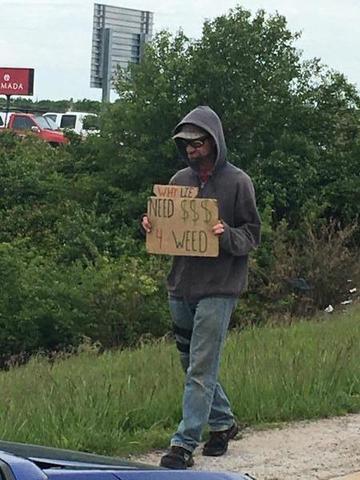 MADA
WHY LIE
NEED $$$
4 WEED